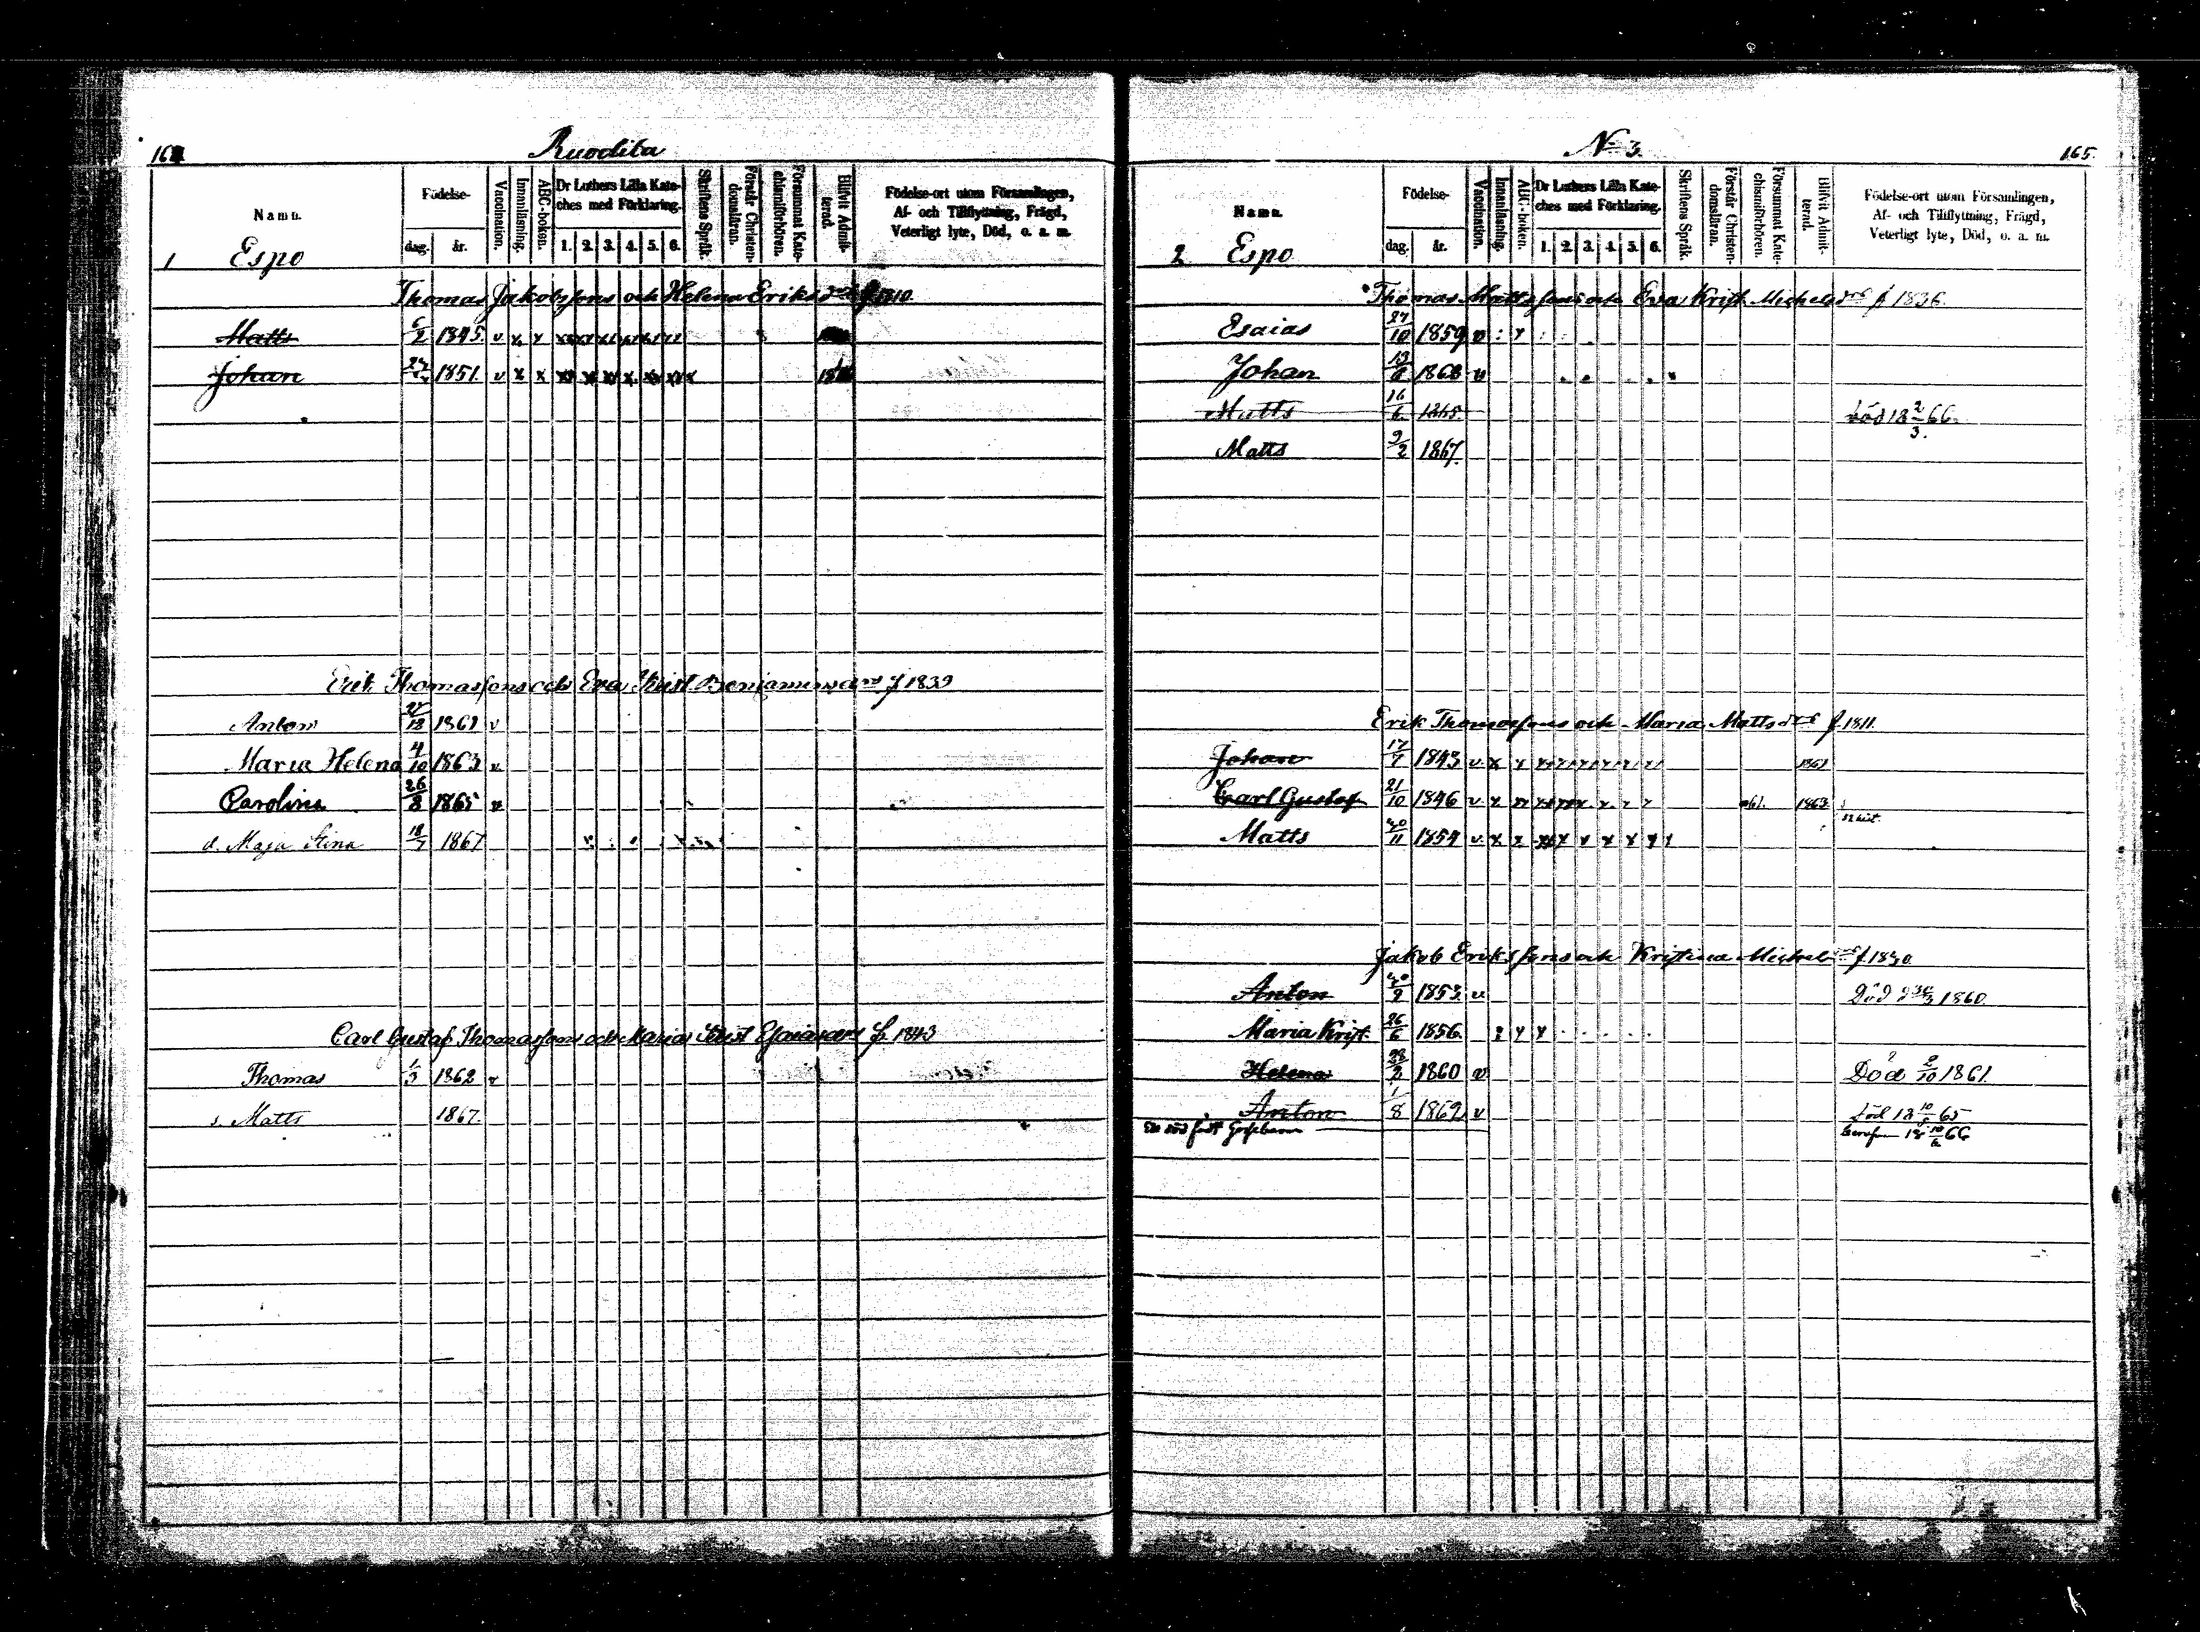 164
Ruodila
Namn.
Födelse-
dag. år.
Vaccination.
Innanläsning.
ABC-boken.
Dr Luthers Lilla Kate-
ches med Förklaring.
1. 2. 3. 4. 5. 6.
Skriftens Språk.
Förstår Christen-
domsläran.
Försummat Kate-
chismiförhören.
Blifvit Admit-
terad.
Födelse-ort utom Församlingen,
Af- och Tillflyttning, Frägd,
Veterligt lyte, Död, o. a. m.
1 Espo
Thomas Jakobssons och Helena Eriksdrs f 1810.
Matts 6/2 1845. v x x
Johan 1851. v x x
Erik Thomassons och Eva Krist Benjaminsdrs f 1839
Anton 1861 v
Maria Helena 4/10 1863 v
Carolina 26/8 1865 v
d. Maja Stina 18/7 1867
Carl Gustaf Thomassons och Maria Krist Esaiasdrs f. 1843
Thomas 1/3 1862 v
s. Matts 1867.
No 3.
165.
Namn.
Födelse-
dag. år.
Vaccination.
Innanläsning.
ABC-boken.
Dr Luthers Lilla Kate-
ches med Förklaring.
1. 2. 3. 4. 5. 6.
Skriftens Språk.
Förstår Christen-
domsläran.
Försummat Kate-
chismiförhören.
Blifvit Admit-
terad.
Födelse-ort utom Församlingen,
Af- och Tillflyttning, Frägd,
Veterligt lyte, Död, o. a. m.
2 Espo
Thomas Mattssons och Eva Krist. Michelsdrs f 1836.
Esaias 27/10 1859 v
Johan 13/8 1863 v
Matts 16/6 1865 död 18 2/3 66.
Matts 9/2 1867.
Erik Thomassons och Maria Mattsdrs f. 1811.
Johan 17/7 1843 v x x 1861
Carl Gustaf 21/10 1846 v x 61. 1863
Matts 30/11 1854 v x x
Jakob Erikssons och Kristina Michelsdrs f 1830
Anton 1853 v Död 1860
Maria Krist. 26/6 1856.
Helena 28/2 1860 v Död 9/10 1861.
Anton 1/8 1862 v död 18 65
En död född 18 66